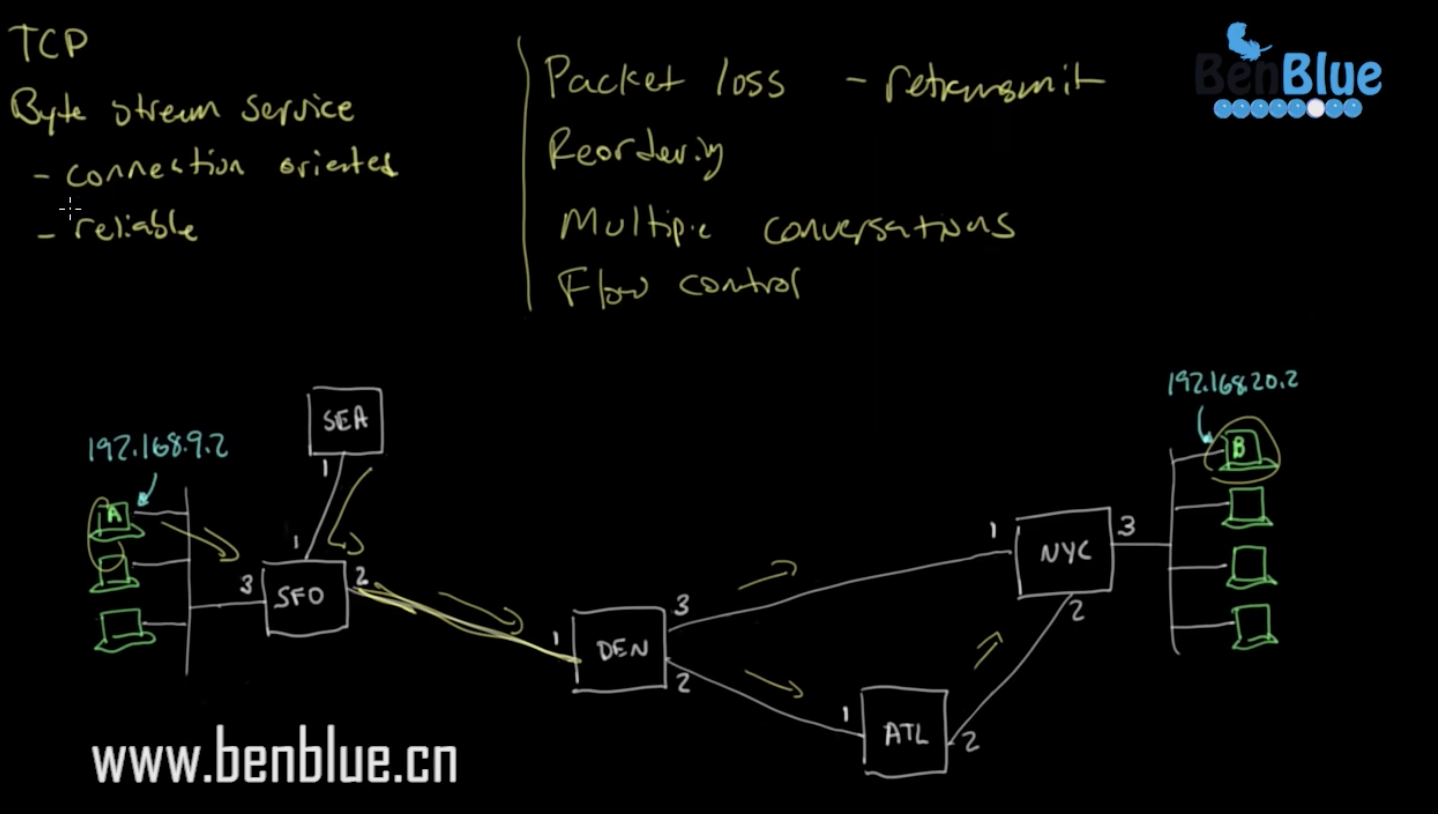 TCP
Byte stream service
- connection oriented
- reliable
Packet loss - retransmit
Reordering
Multiple conversations
Flow control
BenBlue
192.168.20.2
B
SEA
1
192.168.9.2
A
1
3
SFO
2
1
DEN
3
2
1
NYC
3
2
1
ATL
2
www.benblue.cn